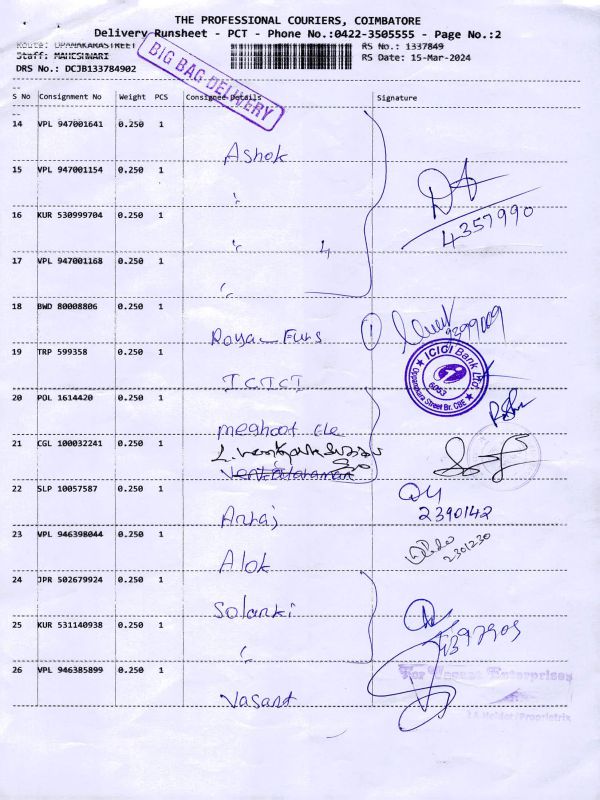 THE PROFESSIONAL COURIERS, COIMBATORE
Delivery Runsheet - PCT - Phone No.:0422-3505555 - Page No.:2
Route: OPANAKARASTREET
RS No.: 1337849
Staff: MAHESHWARI
RS Date: 15-Mar-2024
DRS No.: DCJB133784902
BIG BAG DELIVERY
S No Consignment No Weight PCS Consignee Details Signature
14 VPL 947001641 0.250 1
Ashok
15 VPL 947001154 0.250 1
16 KUR 530999704 0.250 1
4357990
17 VPL 947001168 0.250 1
18 BWD 80008806 0.250 1
19 TRP 599358 0.250 1
ICICI
ICICI Bank Ltd.
6053
Oppanakara Street Br. CBE
20 POL 1614420 0.250 1
21 CGL 100032241 0.250 1
Venkataraman
22 SLP 10057587 0.250 1
2390142
23 VPL 946398044 0.250 1
Alok
2301230
24 JPR 502679924 0.250 1
Solanki
25 KUR 531140938 0.250 1
26 VPL 946385899 0.250 1
For Vasant Enterprises
Vasant